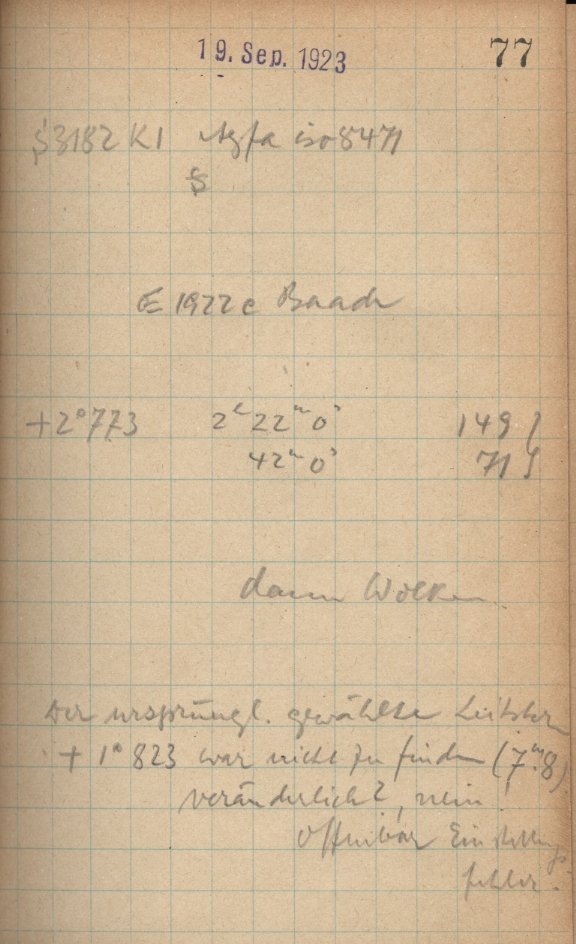 19. Sep. 1923 77
S3182 K1 Agfa iso 8471
S
1922c Baade
+2°773 2h22m0s 149
42m0s 71
dann Wolken.
Der ursprüngl. gewählte Leitstern
+1°823 war nicht zu finden (7m.8)
veränderlich?, nein!
Offenbar Einstellungs-
fehler.